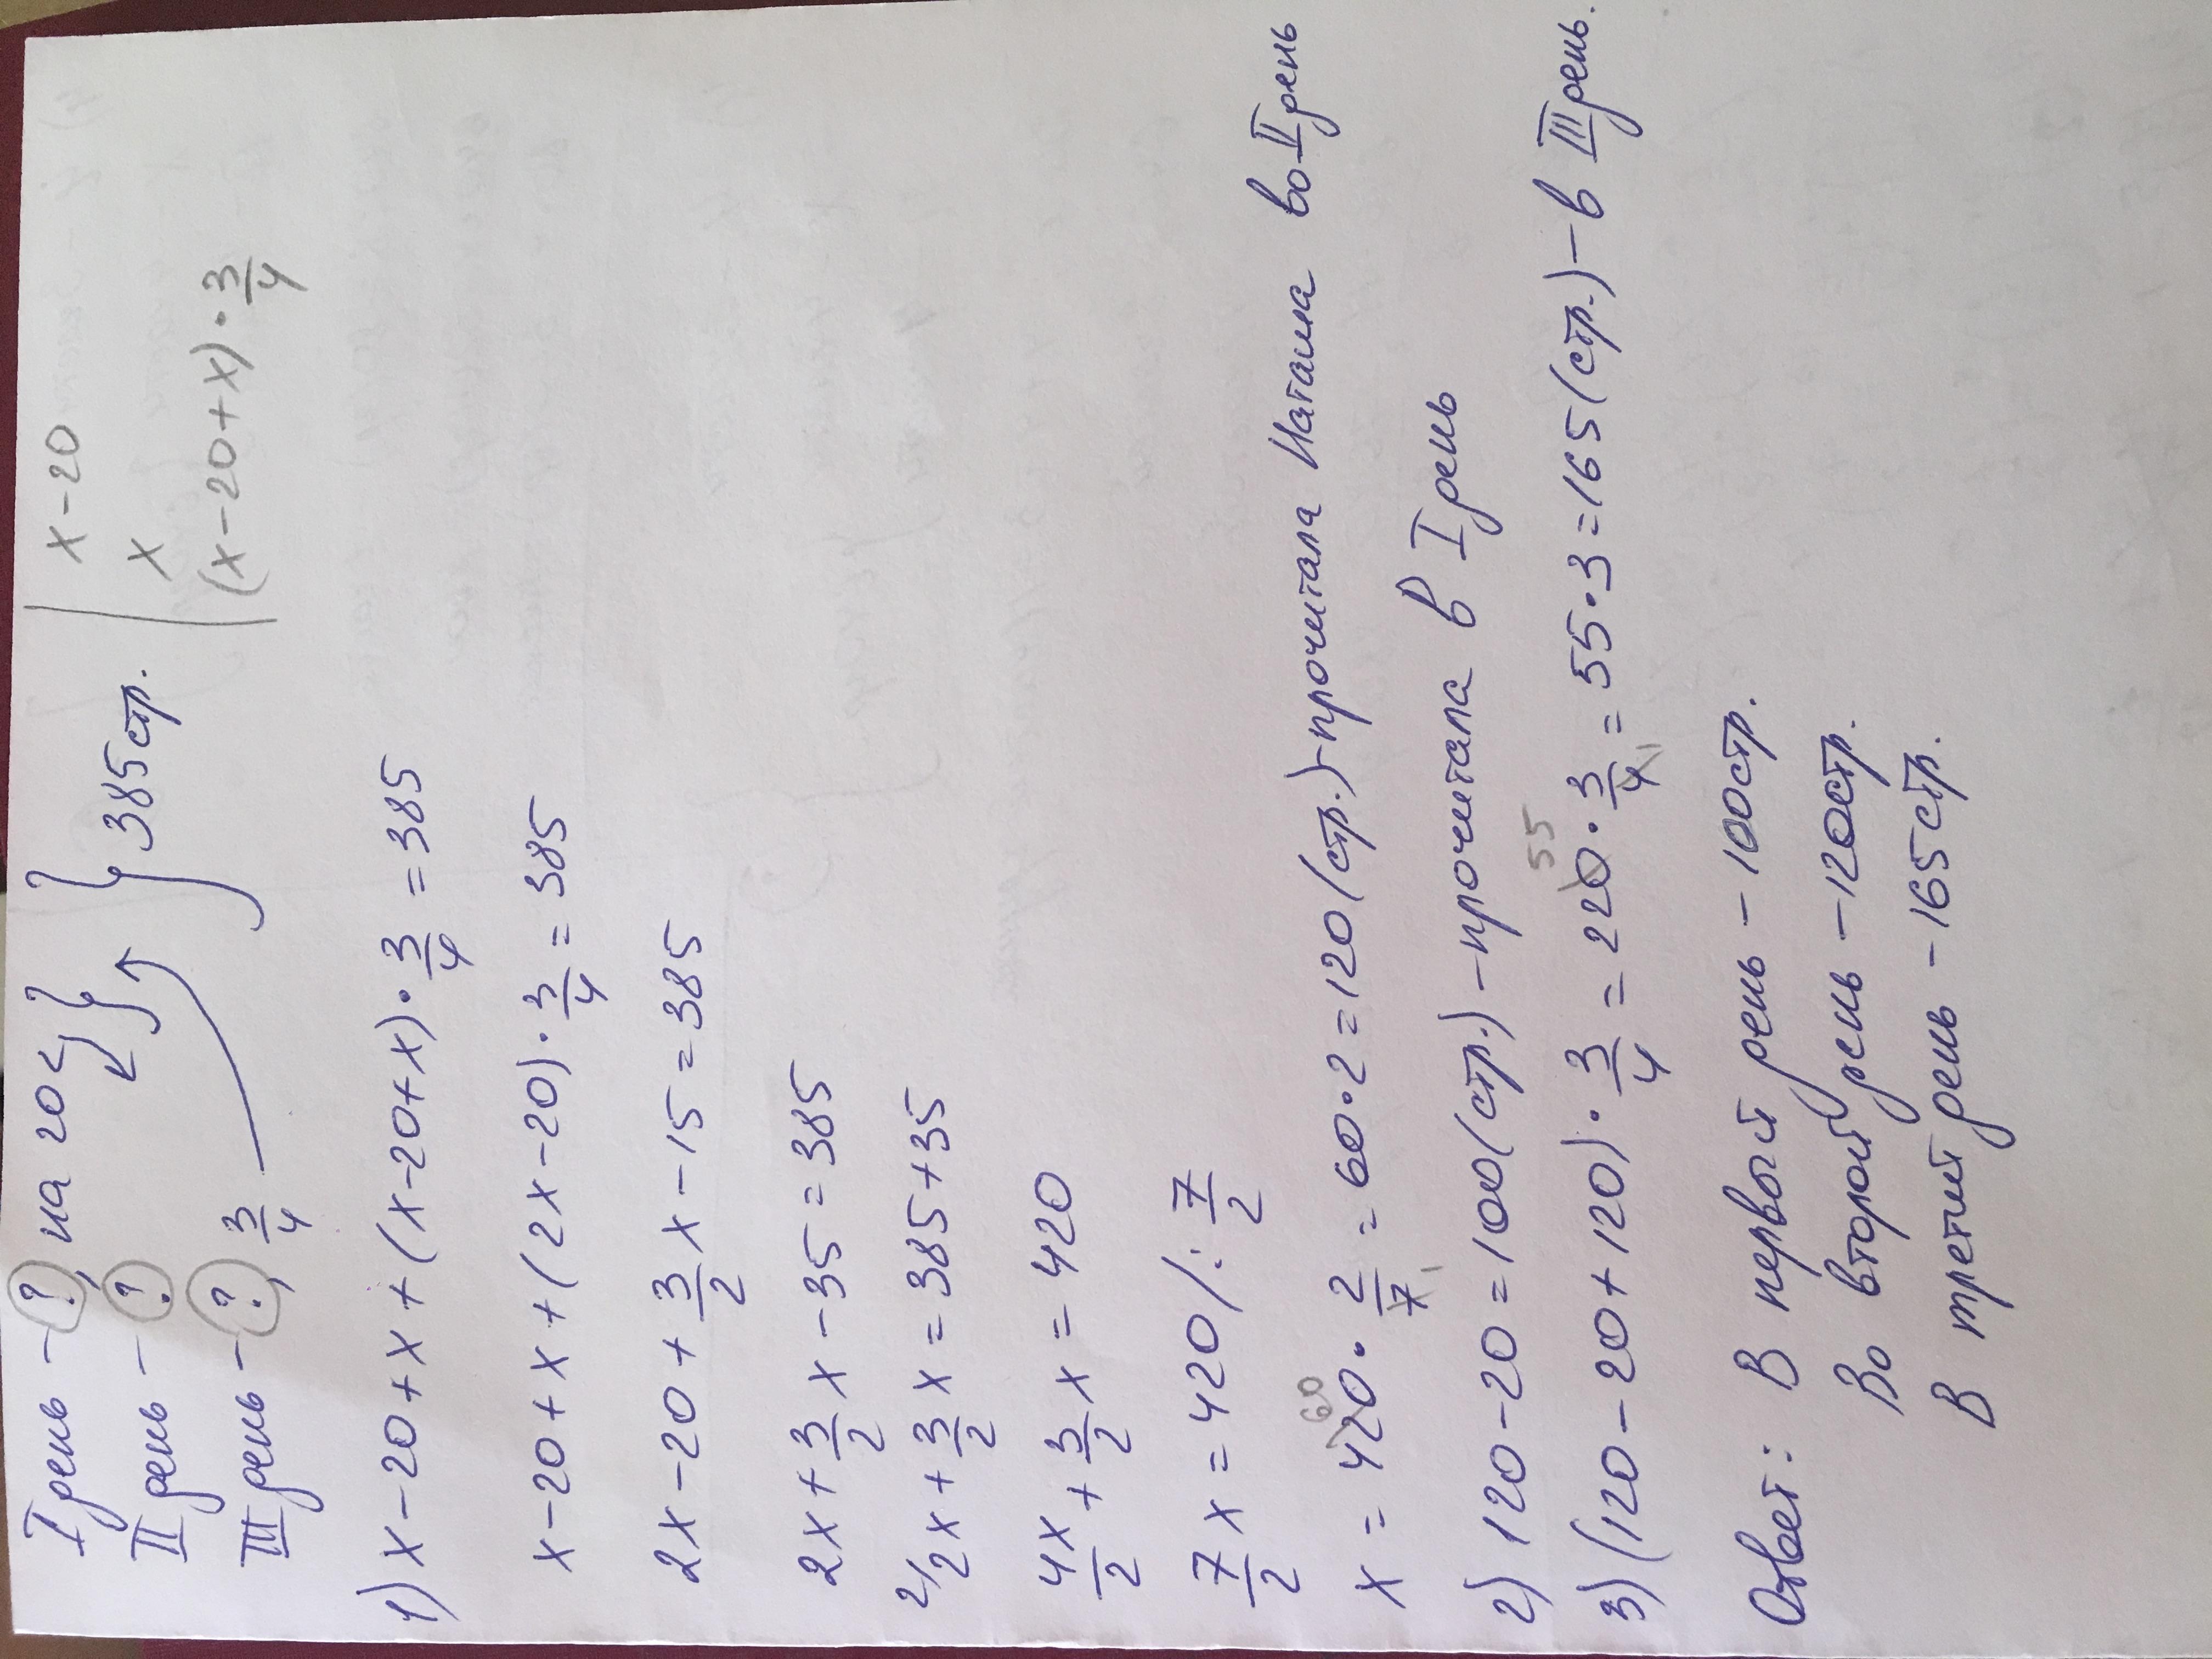 I день - ?, на 20 < } } 385 стр. | x-20
II день - ? x
III день - ?, 3/4 (x-20+x)·3/4
1) x-20+x+(x-20+x)·3/4=385
x-20+x+(2x-20)·3/4=385
2x-20+3/2x-15=385
2x+3/2x-35=385
2/2x+3/2x=385+35
4x/2+3/2x=420
7/2x=420/:7/2
60
x=420·2/7=60·2=120(стр.)-прочитала Наташа во II день
1
2) 120-20=100(стр.)-прочитала в I день
55
3) (120-20+120)·3/4=220·3/4=55·3=165(стр.)-в III день.
1
Ответ: В первый день - 100стр.
Во второй день - 120стр.
В третий день - 165стр.